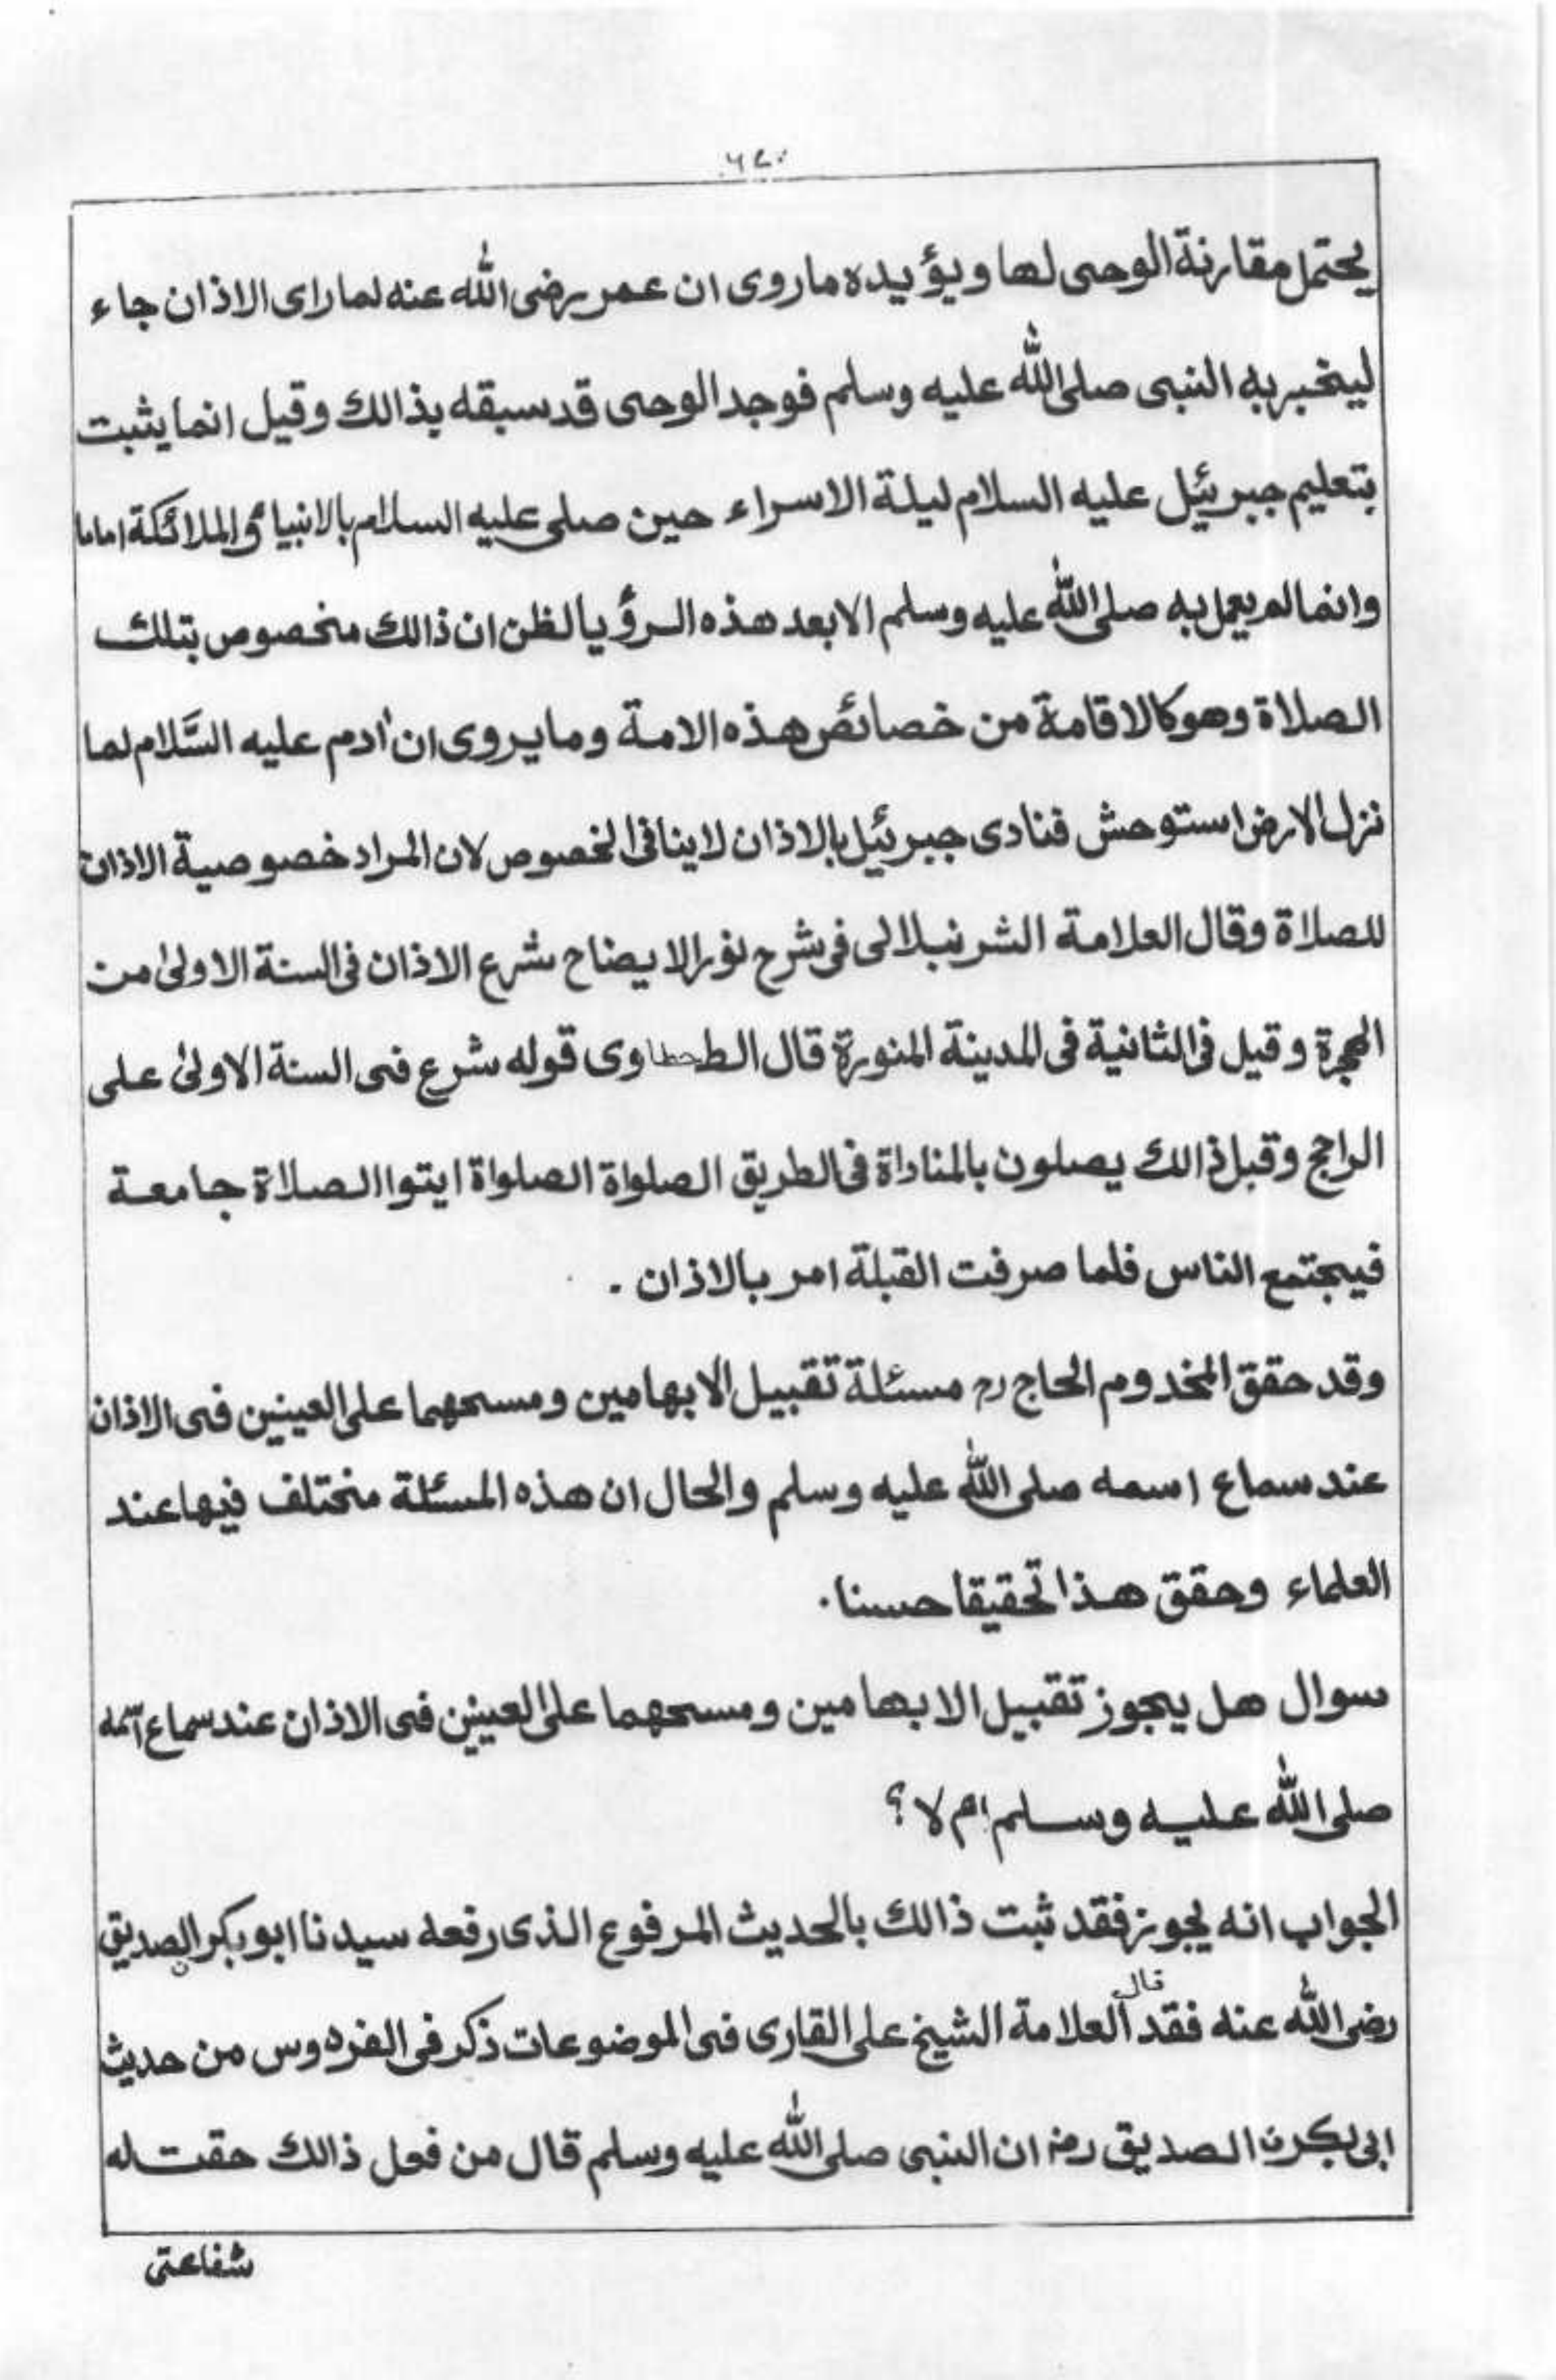 يحتمل مقارنة الوحى لها ويؤيده ماروى ان عمر رضى الله عنه لما راى الاذان جاء
ليخبر به النبى صلى الله عليه وسلم فوجد الوحى قد سبقه بذالك وقيل انما يثبت
بتعليم جبرئيل عليه السلام ليلة الاسراء حين صلى عليه السلام بالانبياء والملائكة اماما
وانما لم يعمل به صلى الله عليه وسلم الا بعد هذه الرؤيا لظن ان ذالك مخصوص بتلك
الصلاة وهو كالاقامة من خصائص هذه الامة وما يروى ان أدم عليه السَّلام لما
نزل الارض استوحش فنادى جبرئيل بالاذان لا ينافى الخصوص لان المراد خصوصية الاذان
للصلاة وقال العلامة الشرنبلالى فى شرح نور الايضاح شرع الاذان فى السنة الاولىٰ من
الهجرة وقيل فى الثانية فى المدينة المنورة قال الطحطاوى قوله شرع فى السنة الاولىٰ على
الراجح وقبل ذالك يصلون بالمناداة فى الطريق الصلواة الصلواة ايتوا الصلاة جامعة
فيجتمع الناس فلما صرفت القبلة امر بالاذان .
وقد حقق المخدوم الحاج رح مسئلة تقبيل الابهامين ومسحهما على العينين فى الاذان
عند سماع اسمه صلى الله عليه وسلم والحال ان هذه المسئلة مختلف فيها عند
العلماء وحقق هذا تحقيقا حسنا.
سوال هل يجوز تقبيل الابهامين ومسحهما على العينين فى الاذان عند سماع اسمه
صلى الله عليه وسلم ام لا؟
الجواب انه يجوز فقد ثبت ذالك بالحديث المرفوع الذى رفعه سيدنا ابو بكر الصديق
رضى الله عنه فقد قال العلامة الشيخ على القارى فى الموضوعات ذكر فى الفردوس من حديث
ابى بكرن الصديق رضـ ان النبى صلى الله عليه وسلم قال من فعل ذالك حقت له
شفاعتى